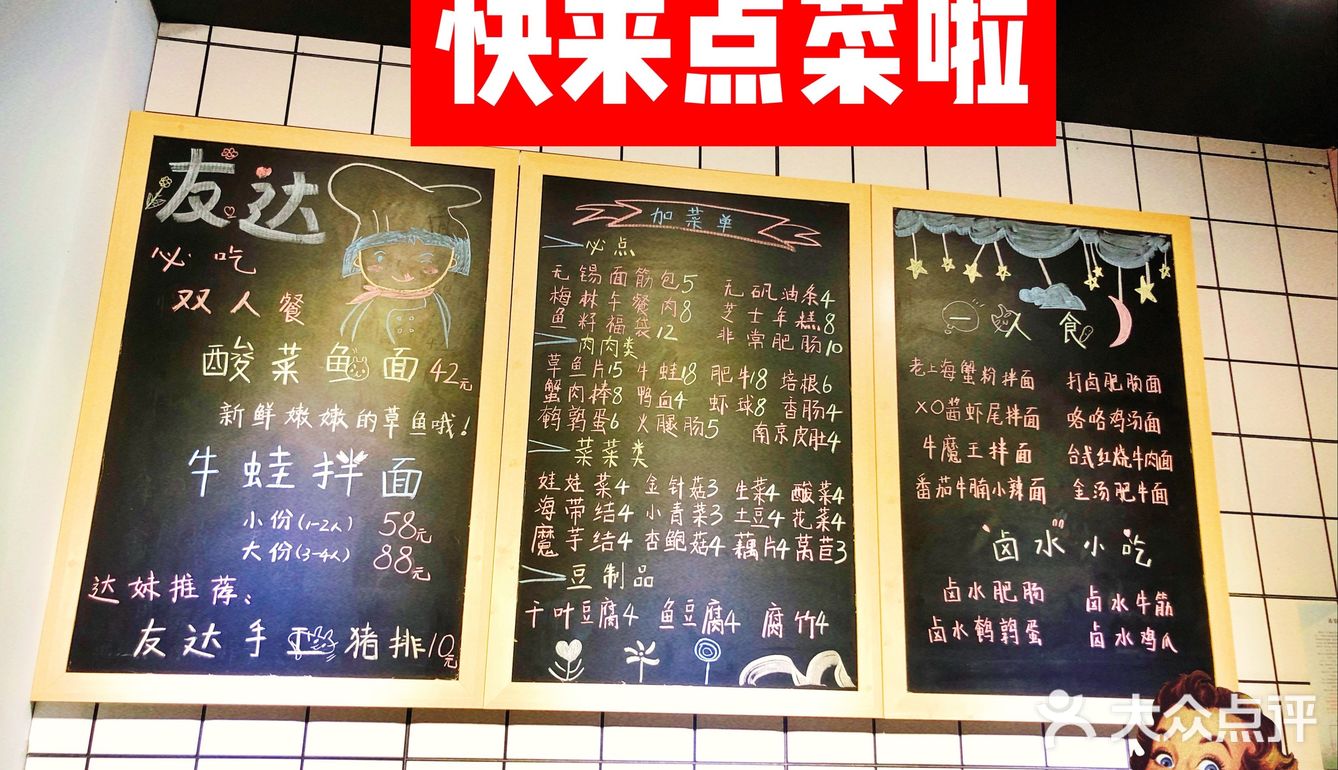 快来点菜啦
友达
必吃
双人餐
酸菜鱼面42元
新鲜嫩嫩的草鱼哦!
牛蛙拌面
小份(1-2人) 58元
大份(3-4人) 88元
达妹推荐:
友达手工猪排10元
加菜单
必点
无锡面筋包5 无矾油条4
梅林午餐肉8 芝士年糕8
鱼籽福袋12 非常肥肠10
肉肉类
草鱼片15 牛蛙18 肥牛18 培根6
蟹肉棒8 鸭血4 虾球8 香肠4
鹌鹑蛋6 火腿肠5 南京皮肚4
菜菜类
娃娃菜4 金针菇3 生菜4 酸菜4
海带结4 小青菜3 土豆4 花菜4
魔芋结4 杏鲍菇4 藕片4 莴苣3
豆制品
千叶豆腐4 鱼豆腐4 腐竹4
一人食
老上海蟹粉拌面 打卤肥肠面
XO酱虾尾拌面 咯咯鸡汤面
牛魔王拌面 台式红烧牛肉面
番茄牛腩小辣面 金汤肥牛面
卤水小吃
卤水肥肠 卤水牛筋
卤水鹌鹑蛋 卤水鸡爪
大众点评